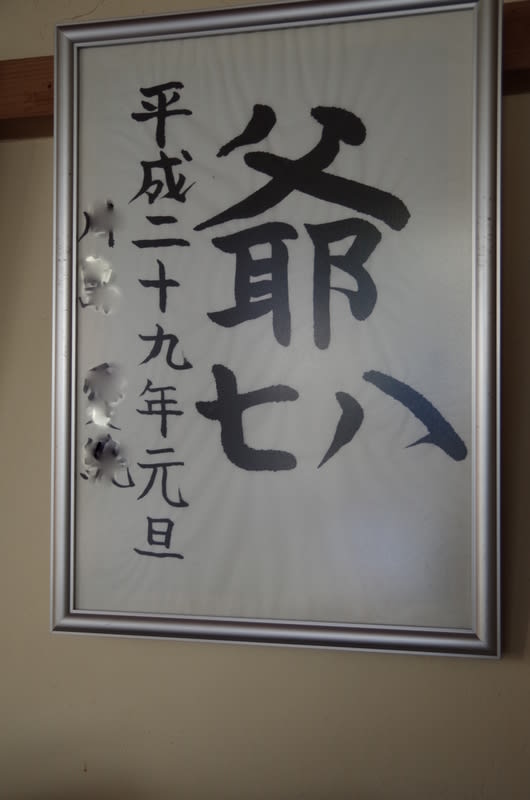 爺
八七
平成二十九年元旦